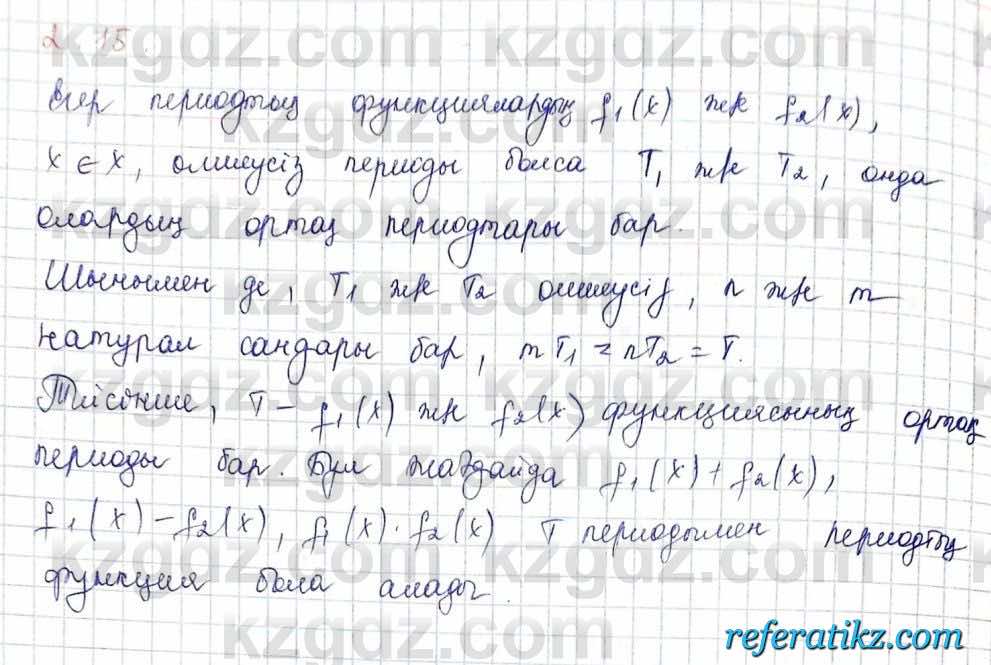 2.15.
Егер периодтың функциялардың f₁(x) жк f₂(x),
x ∈ x, олшеусіз периоды болса T₁ жк T₂, онда
олардың ортақ периодтары бар.
Шынымен де, T₁ жк T₂ олшеусіз, n жк m
натурал сандары бар, mT₁ = nT₂ = T.
Тиісінше, T – f₁(x) жк f₂(x) функциясының ортақ
периоды бар. Бұл жағдайда f₁(x) + f₂(x),
f₁(x) – f₂(x), f₁(x) · f₂(x) T периодымен периодтың
функция бола алады.
referatikz.com
kzgdz.com